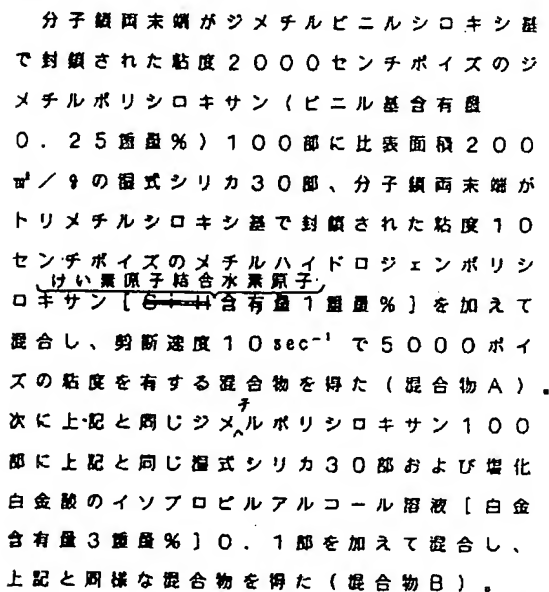 分子鎖両末端がジメチルビニルシロキシ基
で封鎖された粘度2000センチポイズのジ
メチルポリシロキサン(ビニル基含有量
0.25重量%)100部に比表面積200
㎡/gの湿式シリカ30部、分子鎖両末端が
トリメチルシロキシ基で封鎖された粘度10
センチポイズのメチルハイドロジェンポリシ
けい素原子結合水素原子
ロキサン[Si-H含有量1重量%]を加えて
混合し、剪断速度10sec⁻¹で5000ポイ
ズの粘度を有する混合物を得た(混合物A)。
チ
次に上記と同じジメルポリシロキサン100
部に上記と同じ湿式シリカ30部および塩化
白金酸のイソプロピルアルコール溶液[白金
含有量3重量%]0.1部を加えて混合し、
上記と同様な混合物を得た(混合物B)。